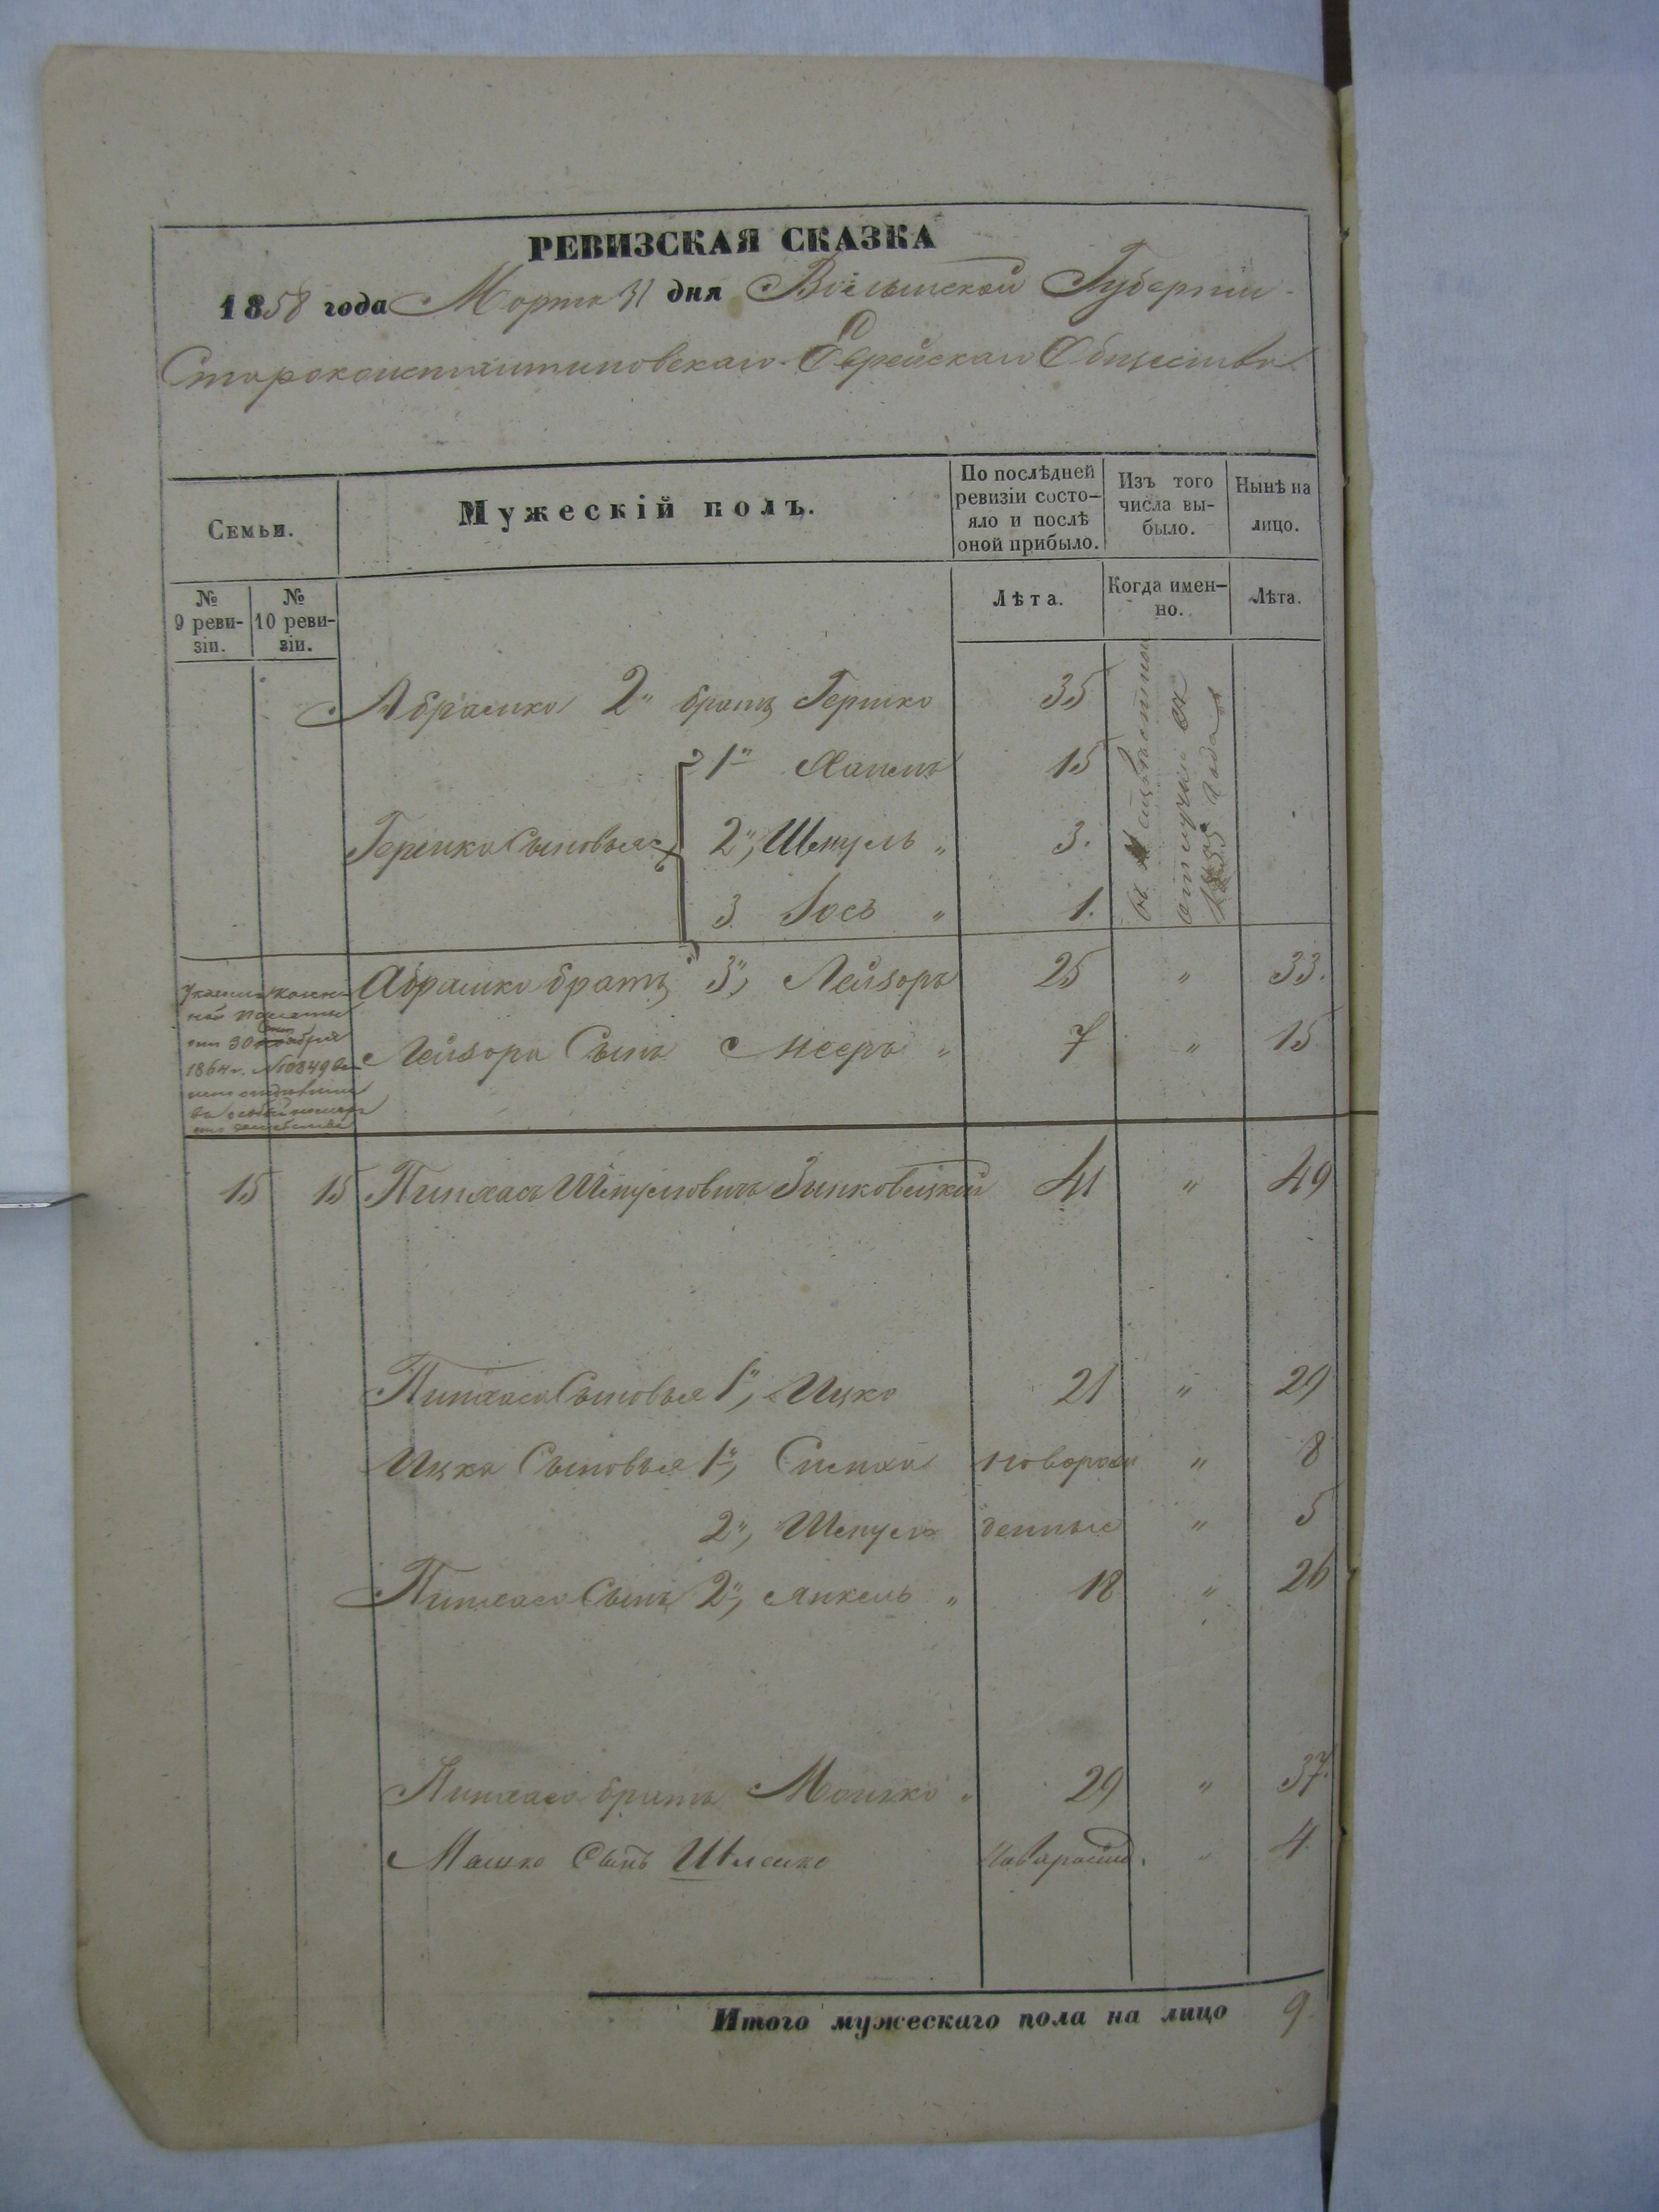 РЕВИЗСКАЯ СКАЗКА
1858 года Марта 31 дня Волынской Губернии
Староконстантиновскаго Еврейскаго Общества
Семьи.
Мужескій полъ.
По послѣдней ревизіи состо-
яло и послѣ
оной прибыло.
Изъ того
числа вы-
было.
Нынѣ на
лицо.
№
9 реви-
зіи.
№
10 реви-
зіи.
Лѣта.
Когда имен-
но.
Лѣта.
Абрамко 2" братъ Гершко 35
1" 15
Гершка Сыновья 2", Шмуль " 3.
3 Іось " 1.
въ
отлучки съ
1855 года
Абрамко братъ 3", Лейзоръ 25 " 33.
Лейзора Сынъ Мееръ " 7 " 15
Указомъ казен
ной Палаты
от 30
1864 г. № 10849
15 15 Пинхасъ Шмулевичъ Зинковецкій 41 " 49
Пинхаса Сыновья 1", Ицко 21 " 29
Ицка Сыновья 1", Симха новорож " 8
2", Шмуль денные " 5
Пинхаса Сынъ 2", Янкель " 18 " 26
Пинхаса братъ Мошко " 29 " 37.
Мошко Сынъ Шлемко Новорожд. " 4.
Итого мужескаго пола на лицо 9